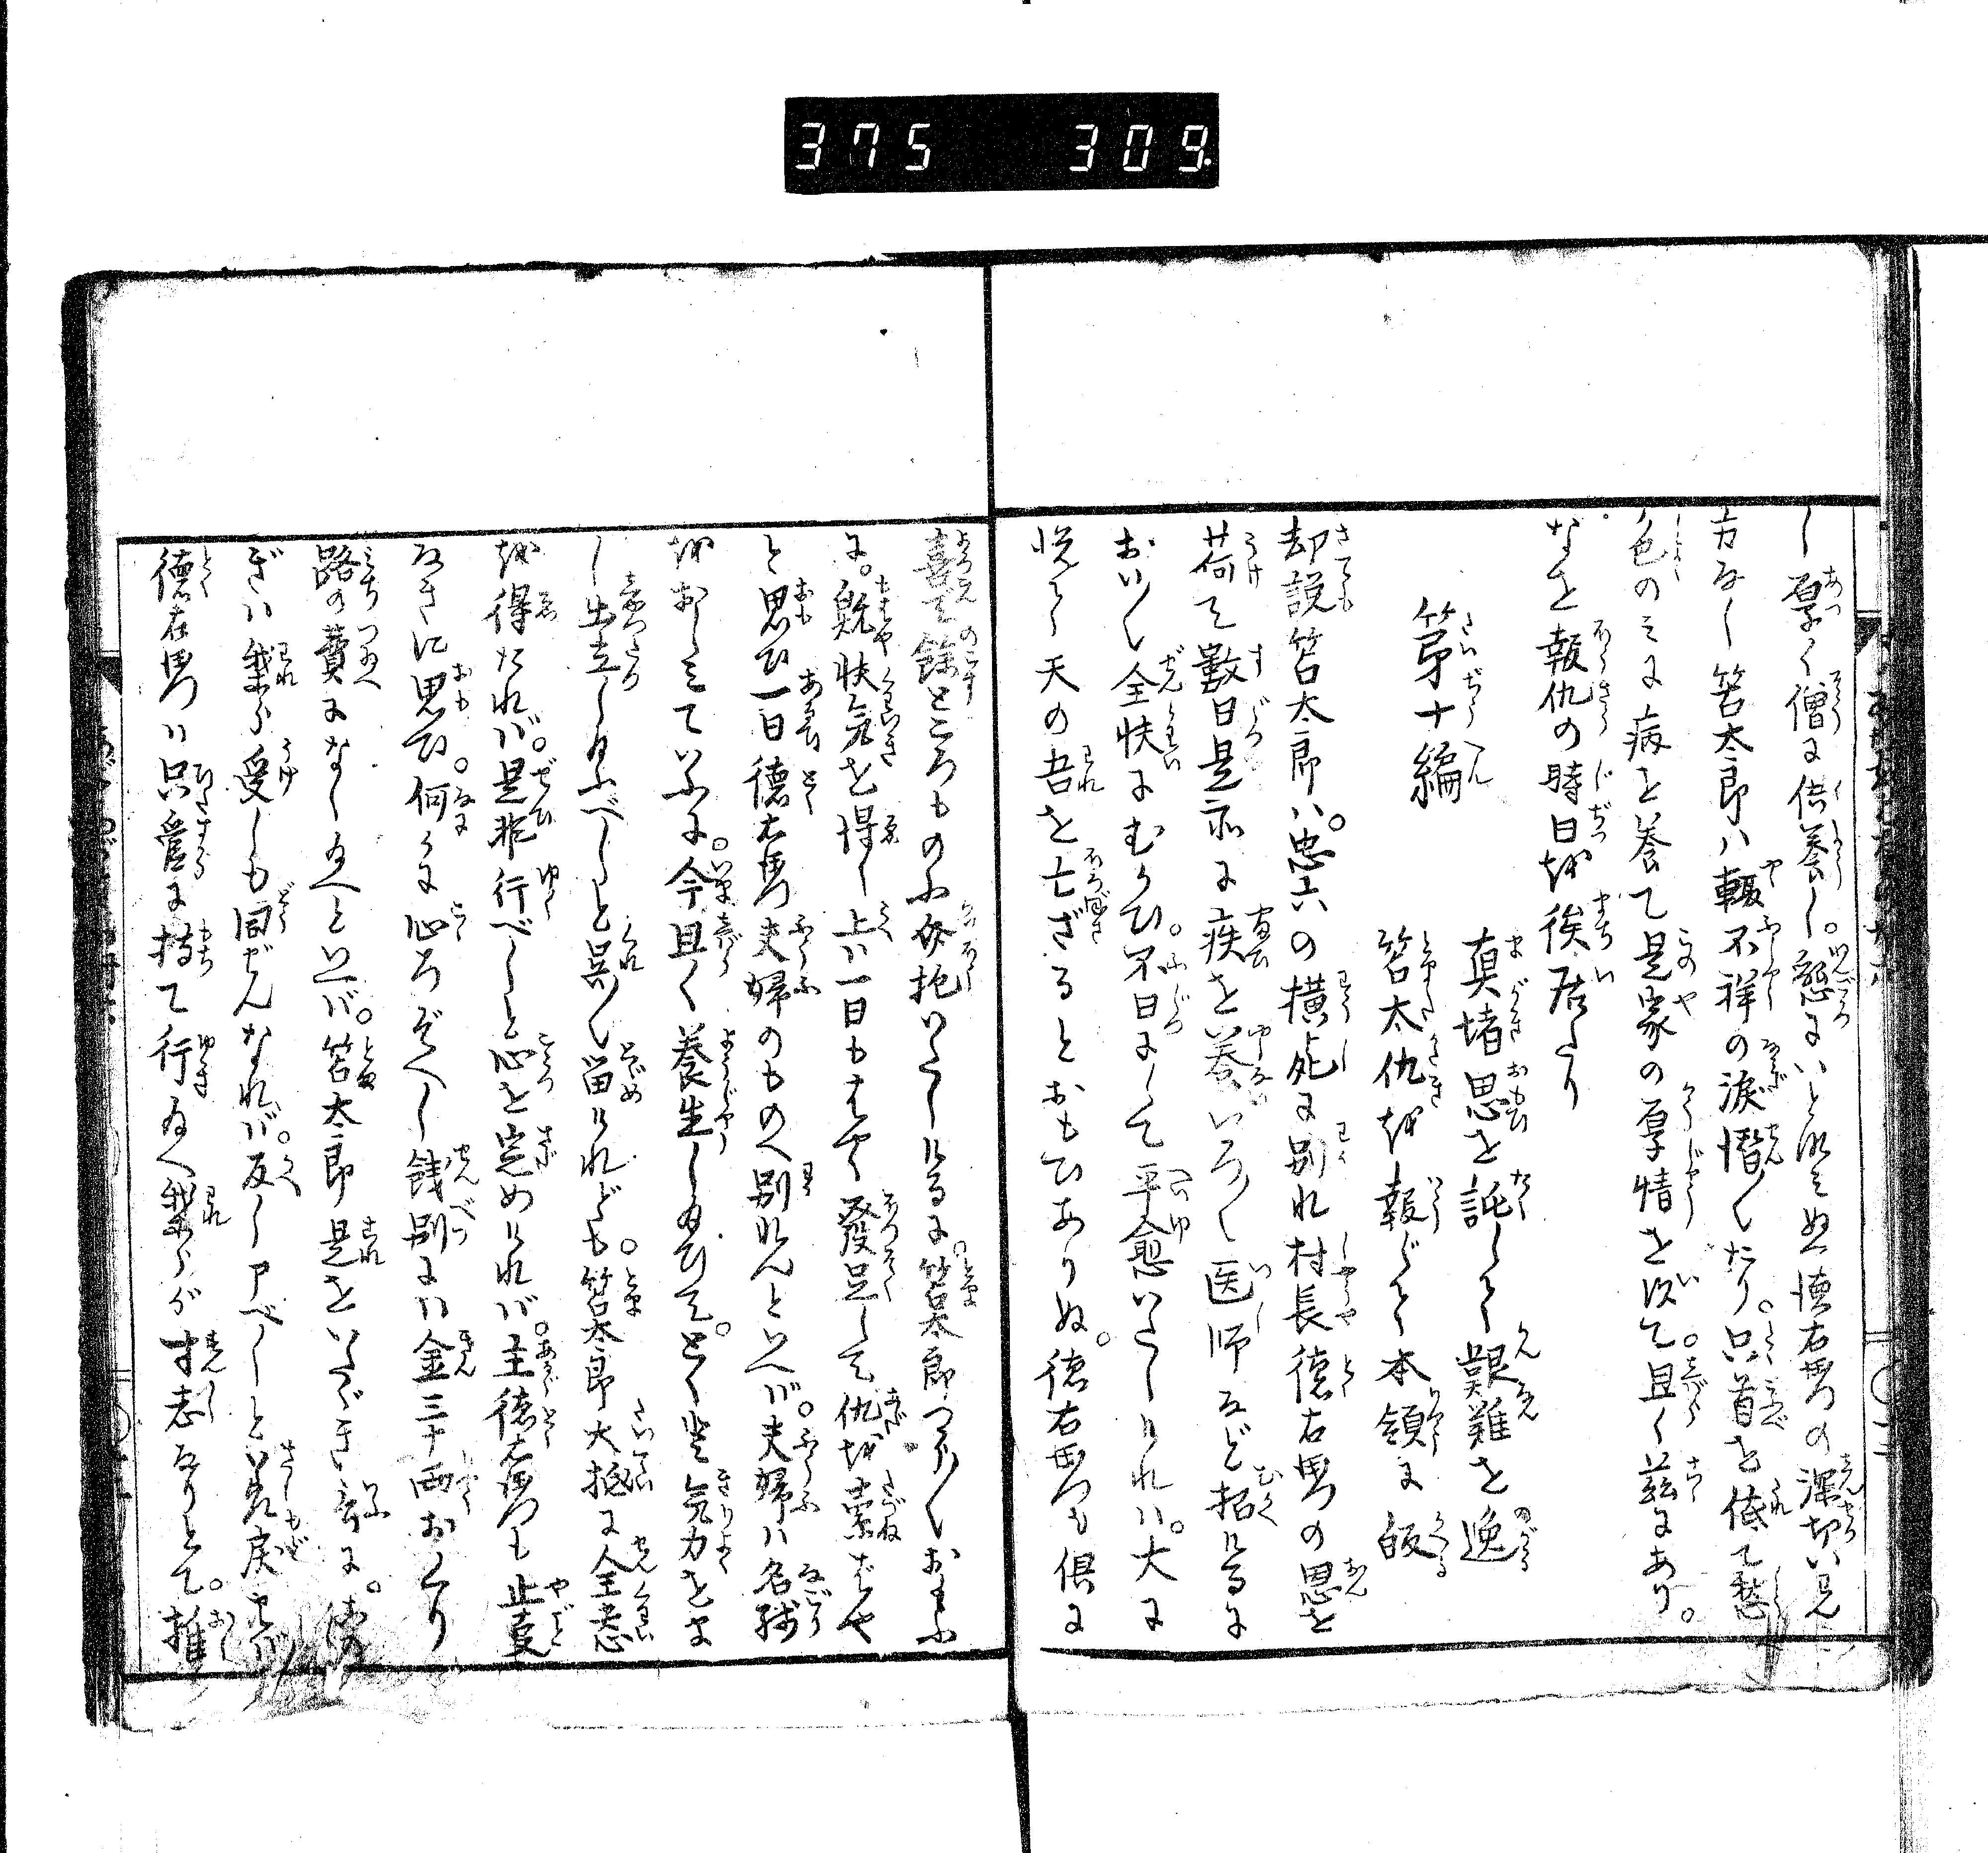 375 309
し厚く僧に供養し。懇にいとなみぬ徳右衛門の深切いは見
方なし笘太郎ハ輙不祥の涙潸〻たり。只首を低て愁
色のミに病を養て是家の厚情を次て。且く茲にあり。
なを報仇の時日を俟居たり
第十編
真堵思を託して艱難を逸
笘太仇を報じて本領に皈
却説笘太郎ハ。忠六の横死に別れ村長徳右衛門の恩を
荷て数日是家に疾を養いろ〳〵医師など招けるに
おい〳〵全快にむかひ。不日にして平愈いたしけれハ。大に
悦て天の吾を亡ざるとおもひありぬ。徳右衛門も倶に
喜て餘ところものふ介抱いたしけるに。笘太郎つら〳〵おもふ
に。既快気を得し上ハ一日もはやく發足して仇を索ばや
と思ひ一日徳右衛門夫婦のものへ別れんといへバ。夫婦ハ名残
をおしミていふに。今且く養生し給ひて。とくと気力をま
し出立し給ふべしと呉〻留けれども。笘太郎大抵に全恚
を得たれバ。是非行べしと心を定めけれバ。主徳右衛門も止夏
なきに思ひ。何かに心ろぞへし餞別にハ金三十両おくり
路の費になし給へといへバ。笘太郎是をいたゞき言に。
ぎハ我等受しも同ぜんなれバ。反し申べしといひ差戻せバ
徳右衛門ハ只管に持て行給へ我等が寸志なりとて。推